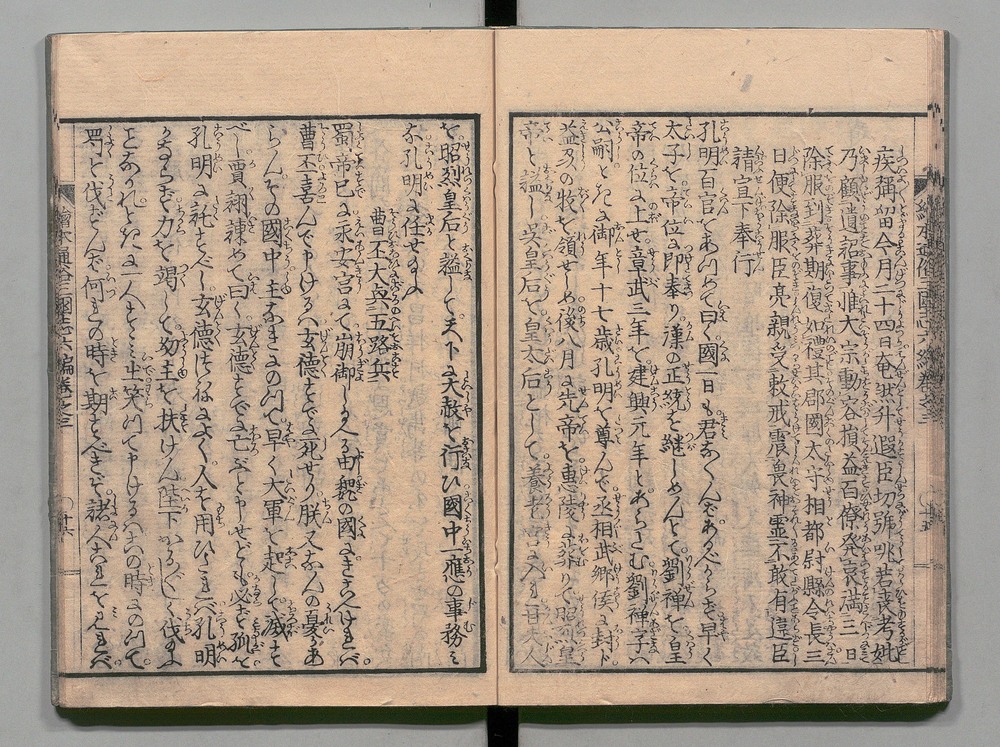 疾稱留今月二十四日奄然升遐臣切號咷若喪考妣
乃顧遺詔事惟大宗動容損益百僚発哀満三日
除服到葬期復如禮其郡國太守相都尉縣令長三
日便除服臣亮親受敕戒震畏神靈不敢有違臣
請宣下奉行
孔明百官をあつめて曰く國一日も君なくんばあるべからず早く
太子を帝位に即奉り漢の正統を継しめんとて劉禅を皇
帝の位に上せ章武三年を建興元年とあらたむ劉禅字ハ
公嗣ときに御年十七歳孔明を尊んで丞相武郷侯に封ド
益州の牧を領せしめ後八月に先帝を惠陵に葬りて昭烈皇
帝と謚し呉皇后を皇太后として養老宮に入れ甘夫人
を昭烈皇后と謚して天下に大赦を行ひ國中一應の事務ミ
な孔明に任せたまふ
曹丕大兵五路兵
蜀帝已に永安宮にて崩御したる由魏の國にきこへけれバ
曹丕喜んで申けるハ玄德すでに死せり朕又なんの憂かあ
らんその國中主なきに乗て早く大軍を起して滅すべ
べし賈詡諫めて曰く玄德すでに亡ぶと申せども必ず孤を
孔明に託すべし玄德つねによく人を用ひたれバ孔明
かならず力を竭して幼主を扶けん陛下かるがるしく伐たま
ふことなかれときに一人すゝミ出笑つて申けるハ此の時にのつて
蜀を伐ずんバ何れの時を期すべきぞ諸人これをミれバ
繪本通俗三國志六編卷之三
繪本通俗三國志六編卷之三
廿六